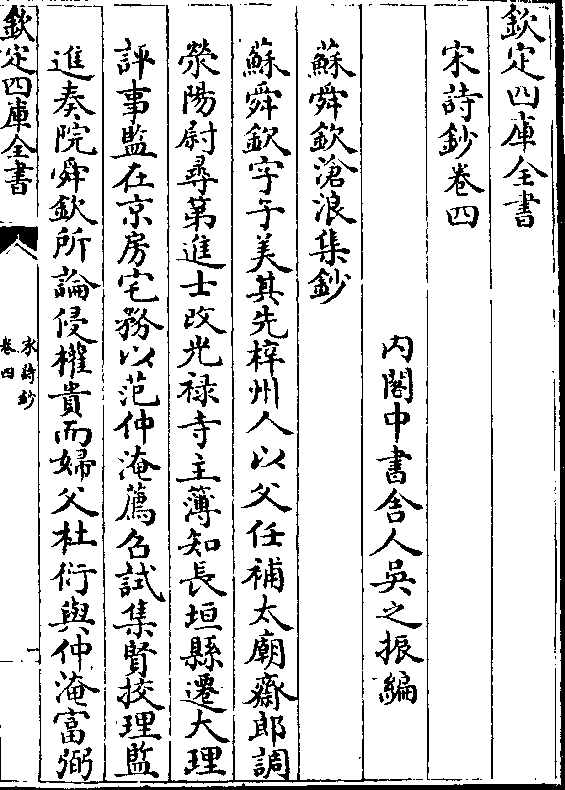 欽定四庫全書
宋詩鈔卷四
内閣中書舍人吳之振編
蘇舜欽滄浪集鈔
蘇舜欽字子美其先梓州人以父任補太廟齋郎調
滎陽尉尋第進士改光禄寺主簿知長垣縣遷大理
評事監在京房宅務以范仲淹薦召試集賢挍理監
進奏院舜欽所論侵權貴而婦父杜衍與仲淹富弼
欽定四庫全書
宋詩鈔
卷四
一